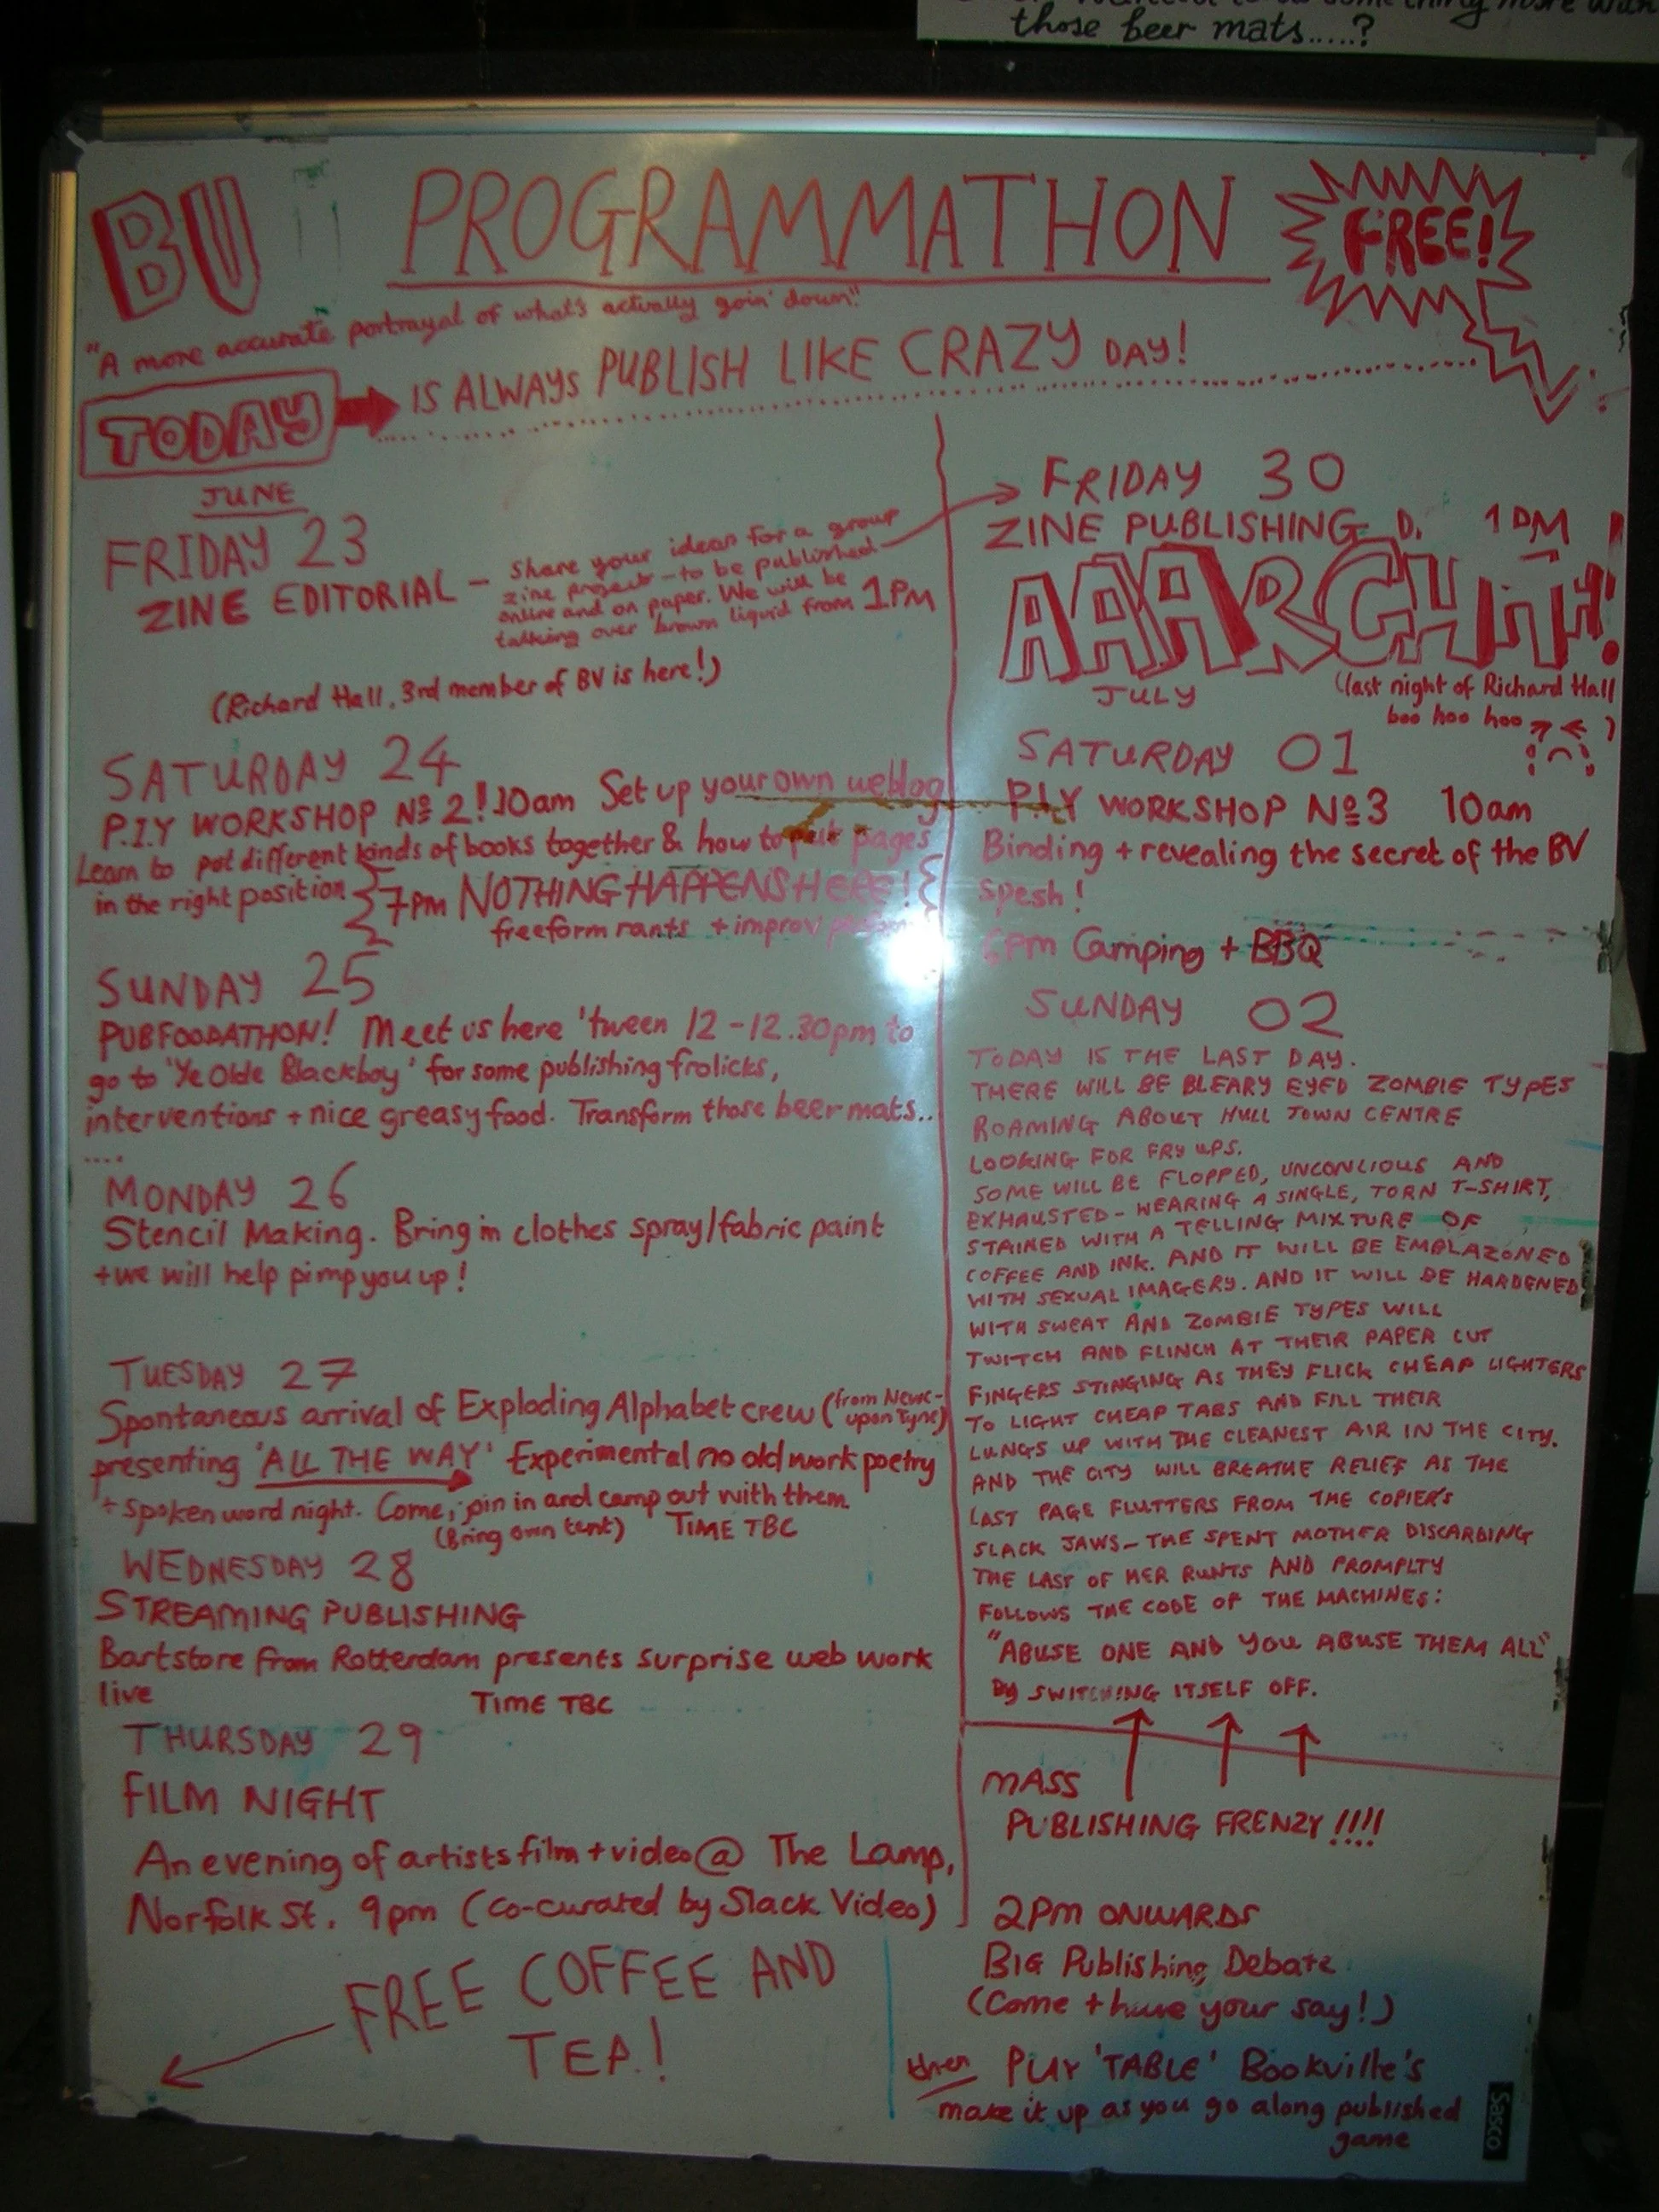 those beer mats.....?
BV PROGRAMMATHON FREE!
"A more accurate portrayal of what's actually goin' down"
TODAY IS ALWAYS PUBLISH LIKE CRAZY DAY!
JUNE
FRIDAY 23
ZINE EDITORIAL - Share your ideas for a group
zine project - to be published
online and on paper. We will be
talking over brown liquid from 1PM
(Richard Hall, 3rd member of BV is here!)
SATURDAY 24
P.I.Y WORKSHOP Nº 2! 10am Set up your own weblog
Learn to put different kinds of books together & how to put pages
in the right position 7pm NOTHING HAPPENS HERE!
freeform rants + improv
SUNDAY 25
PUBFOODATHON! Meet us here 'tween 12-12.30pm to
go to 'Ye Olde Blackboy' for some publishing frolicks,
interventions + nice greasy food. Transform those beer mats..
....
MONDAY 26
Stencil Making. Bring in clothes spray/fabric paint
+ we will help pimp you up!
TUESDAY 27
Spontaneous arrival of Exploding Alphabet crew (from Newc-
upon Tyne)
presenting 'ALL THE WAY' Experimental no old work poetry
+ spoken word night. Come, join in and camp out with them.
(Bring own tent) TIME TBC
WEDNESDAY 28
STREAMING PUBLISHING
Bartstore from Rotterdam presents surprise web work
live TIME TBC
THURSDAY 29
FILM NIGHT
An evening of artists film + video @ The Lamp,
Norfolk St. 9pm (co-curated by Slack Video)
FREE COFFEE AND
TEA!
FRIDAY 30
ZINE PUBLISHING D. 1PM
AAARGHHH!
JULY
(last night of Richard Hall
boo hoo hoo )
SATURDAY 01
P.I.Y WORKSHOP Nº3 10am
Binding + revealing the secret of the BV
spesh!
6pm Camping + BBQ
SUNDAY 02
TODAY IS THE LAST DAY.
THERE WILL BE BLEARY EYED ZOMBIE TYPES
ROAMING ABOUT HULL TOWN CENTRE
LOOKING FOR FRY UPS.
SOME WILL BE FLOPPED, UNCONCIOUS AND
EXHAUSTED - WEARING A SINGLE, TORN T-SHIRT,
STAINED WITH A TELLING MIXTURE OF
COFFEE AND INK. AND IT WILL BE EMBLAZONED
WITH SEXUAL IMAGERY. AND IT WILL BE HARDENED
WITH SWEAT AND ZOMBIE TYPES WILL
TWITCH AND FLINCH AT THEIR PAPER CUT
FINGERS STINGING AS THEY FLICK CHEAP LIGHTERS
TO LIGHT CHEAP TABS AND FILL THEIR
LUNGS UP WITH THE CLEANEST AIR IN THE CITY.
AND THE CITY WILL BREATHE RELIEF AS THE
LAST PAGE FLUTTERS FROM THE COPIER'S
SLACK JAWS - THE SPENT MOTHER DISCARDING
THE LAST OF HER RUNTS AND PROMPLTY
FOLLOWS THE CODE OF THE MACHINES:
"ABUSE ONE AND YOU ABUSE THEM ALL"
BY SWITCHING ITSELF OFF.
MASS
PUBLISHING FRENZY!!!!
2PM ONWARDS
BIG Publishing Debate
(Come + have your say!)
then PLAY 'TABLE' Bookville's
make it up as you go along published
game
Sasco